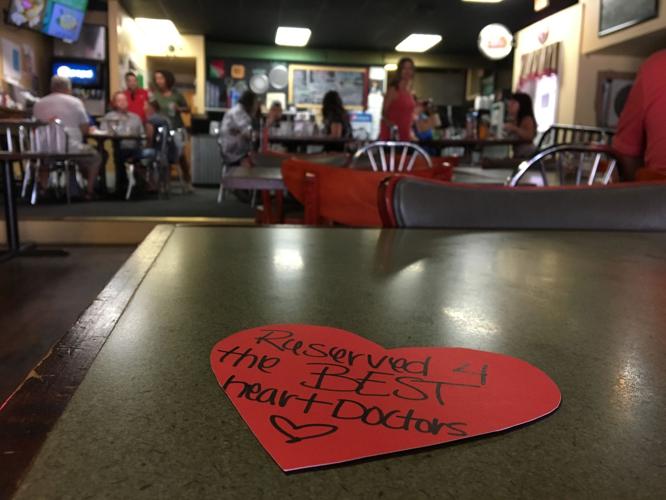 Reserved 4
the BEST
heart Doctors